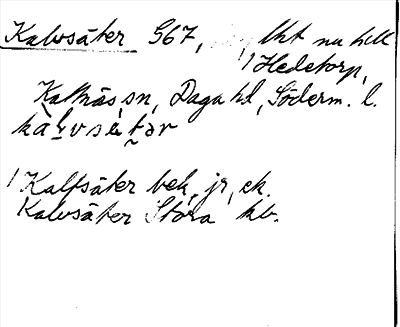 Kalvsäter 567, lht nu till
1/Hedetorp,
Kattnäs sn, Daga hd, Söderm. l.
kalvsetər
1 Kalfsäter bek, jr, ek.
Kalvsäter Stora kb.